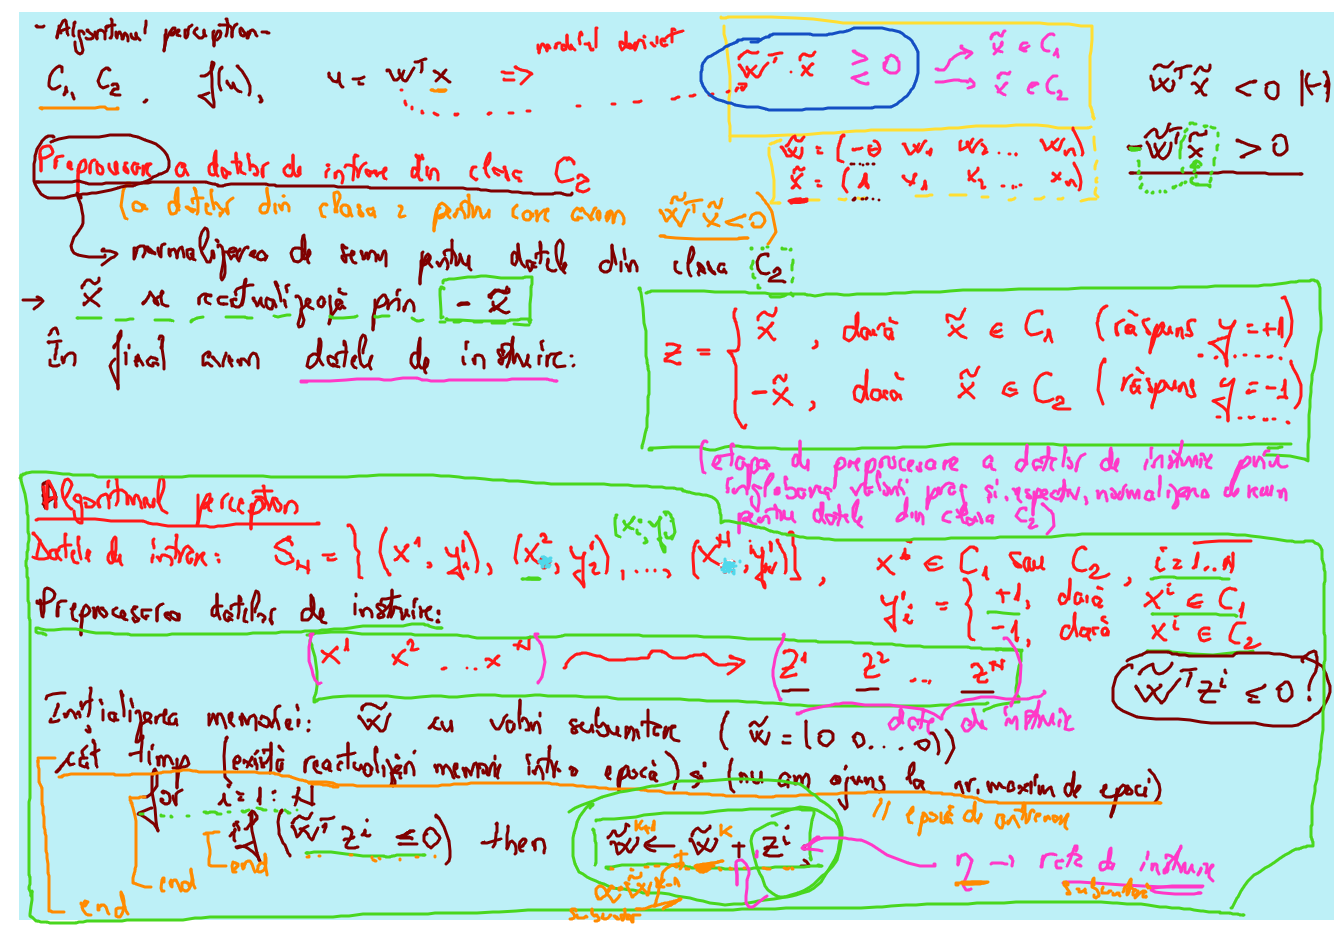 - Algoritmul perceptron -
C₁, C₂ , f(u), u = wᵀx ⇒ modelul derivat
w̃ᵀ·x̃ ≥ 0 → x̃ ∈ C₁
≤ → x̃ ∈ C₂
w̃ᵀx̃ < 0 |(-1)
-w̃ᵀx̃ > 0
w̃ = (-θ w₁ w₂ ... wₙ)
x̃ = (1 x₁ x₂ ... xₙ)
Preprocesare a datelor de intrare din clasa C₂
(a datelor din clasa 2 pentru care avem w̃ᵀx̃ < 0)
→ normalizarea de semn pentru datele din clasa C₂
→ x̃ se reactualizează prin - x̃
În final avem datele de instruire:
z = { x̃ , dacă x̃ ∈ C₁ (răspuns y = +1)
-x̃ , dacă x̃ ∈ C₂ (răspuns y = -1)
(etapa de preprocesare a datelor de instruire prin
înglobarea valorii prag și, respectiv, normalizarea de semn
pentru datele din clasa C₂)
Algoritmul perceptron
(xᵢ, yᵢ)
Datele de intrare: S_N = { (x¹, y₁), (x², y₂), ..., (x^N, y_N)}, xⁱ ∈ C₁ sau C₂, i = 1..N
yᵢ = { +1, dacă xⁱ ∈ C₁
-1, dacă xⁱ ∈ C₂
Preprocesarea datelor de instruire:
(x¹ x² ... x^N) → (z¹ z² ... z^N)
date de instruire
w̃ᵀzⁱ ≤ 0 ?
Inițializarea memoriei: w̃ cu valori subunitare ( w̃ = (0 0 ... 0))
cât timp (există reactualizări memorie într-o epocă) și (nu am ajuns la nr. maxim de epoci)
// epocă de antrenare
for i = 1 : N
if (w̃ᵀ zⁱ ≤ 0) then w̃ᵏ⁺¹ ← w̃ᵏ + η zⁱ
η → rata de instruire
subunitară
+ α·w̃ᵏ⁻¹
subunitar
end
end
end